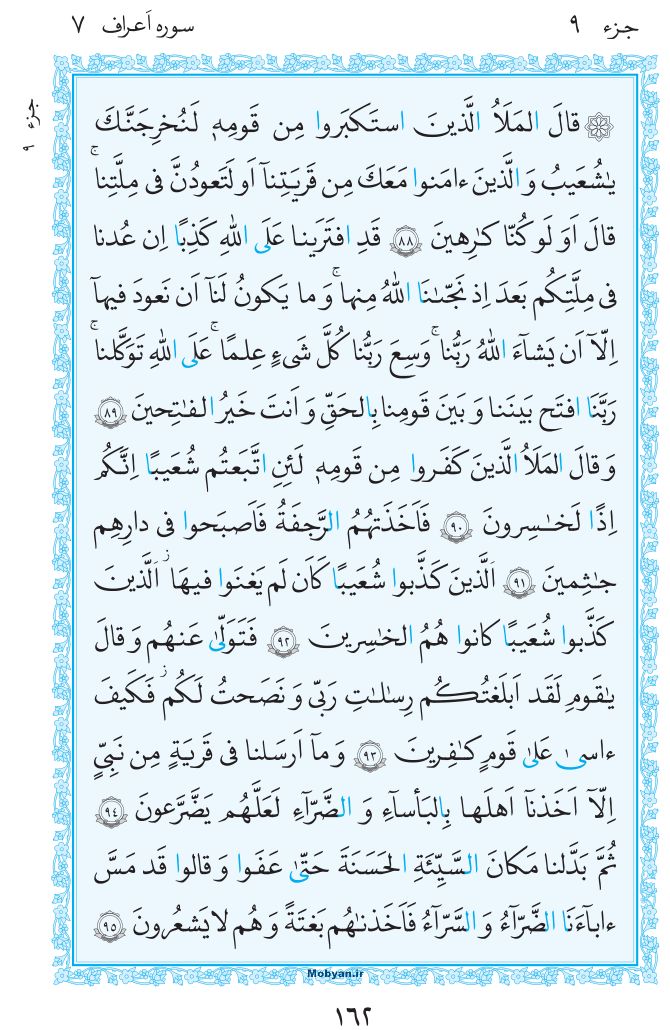 جزء ۹
سوره اَعراف ۷
جزء ۹
قالَ المَلَاُ الَّذينَ استَكبَروا مِن قَومِه۪ لَنُخرِجَنَّكَ
يٰشُعَيبُ وَ الَّذينَ ءامَنوا مَعَكَ مِن قَريَتِنآ اَو لَتَعودُنَّ فى مِلَّتِناۚ
قالَ اَوَ لَو كُنّا كٰرِهينَ ﴿۸۸﴾ قَدِ افتَرَينا عَلَى اللّٰهِ كَذِبًا اِن عُدنا
فى مِلَّتِكُم بَعدَ اِذ نَجّىٰنَا اللّٰهُ مِنهاۚ وَ ما يَكونُ لَنآ اَن نَعودَ فيهآ
اِلّآ اَن يَشآءَ اللّٰهُ رَبُّناۚ وَسِعَ رَبُّنا كُلَّ شَىءٍ عِلمًاۚ عَلَى اللّٰهِ تَوَكَّلناۚ
رَبَّنَا افتَح بَينَنا وَ بَينَ قَومِنا بِالحَقِّ وَ اَنتَ خَيرُ الفٰتِحينَ ﴿۸۹﴾
وَ قالَ المَلَاُ الَّذينَ كَفَروا مِن قَومِه۪ لَئِنِ اتَّبَعتُم شُعَيبًا اِنَّكُم
اِذًا لَخٰسِرونَ ﴿۹۰﴾ فَاَخَذَتهُمُ الرَّجفَةُ فَاَصبَحوا فى دارِهِم
جٰثِمينَ ﴿۹۱﴾ اَلَّذينَ كَذَّبوا شُعَيبًا كَاَن لَم يَغنَوا فيهَاۛ اَلَّذينَ
كَذَّبوا شُعَيبًا كانوا هُمُ الخٰسِرينَ ﴿۹۲﴾ فَتَوَلّىٰ عَنهُم وَ قالَ
يٰقَومِ لَقَد اَبلَغتُكُم رِسٰلٰتِ رَبّى وَ نَصَحتُ لَكُمۛ فَكَيفَ
ءاسىٰ عَلىٰ قَومٍ كٰفِرينَ ﴿۹۳﴾ وَ مآ اَرسَلنا فى قَريَةٍ مِن نَبِىٍّ
اِلّآ اَخَذنآ اَهلَها بِالبَأسآءِ وَ الضَّرّآءِ لَعَلَّهُم يَضَّرَّعونَ ﴿۹٤﴾
ثُمَّ بَدَّلنا مَكانَ السَّيِّئَةِ الحَسَنَةَ حَتّىٰ عَفَوا وَ قالوا قَد مَسَّ
ءابآءَنَا الضَّرّآءُ وَ السَّرّآءُ فَاَخَذنٰهُم بَغتَةً وَ هُم لا يَشعُرونَ ﴿۹٥﴾
Mobyan.ir
۱٦۲